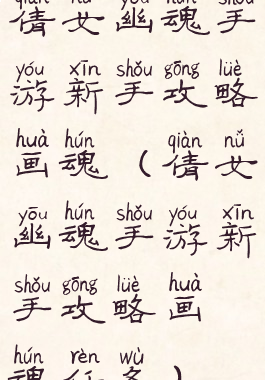 qiàn nǚ yōu hún shǒu
倩女幽魂手
yóu xīn shǒu gōng lüè
游新手攻略
huà hún qiàn nǚ
画魂（倩女
yōu hún shǒu yóu xīn
幽魂手游新
shǒu gōng lüè huà
手攻略画
hún rèn wù
魂任务）